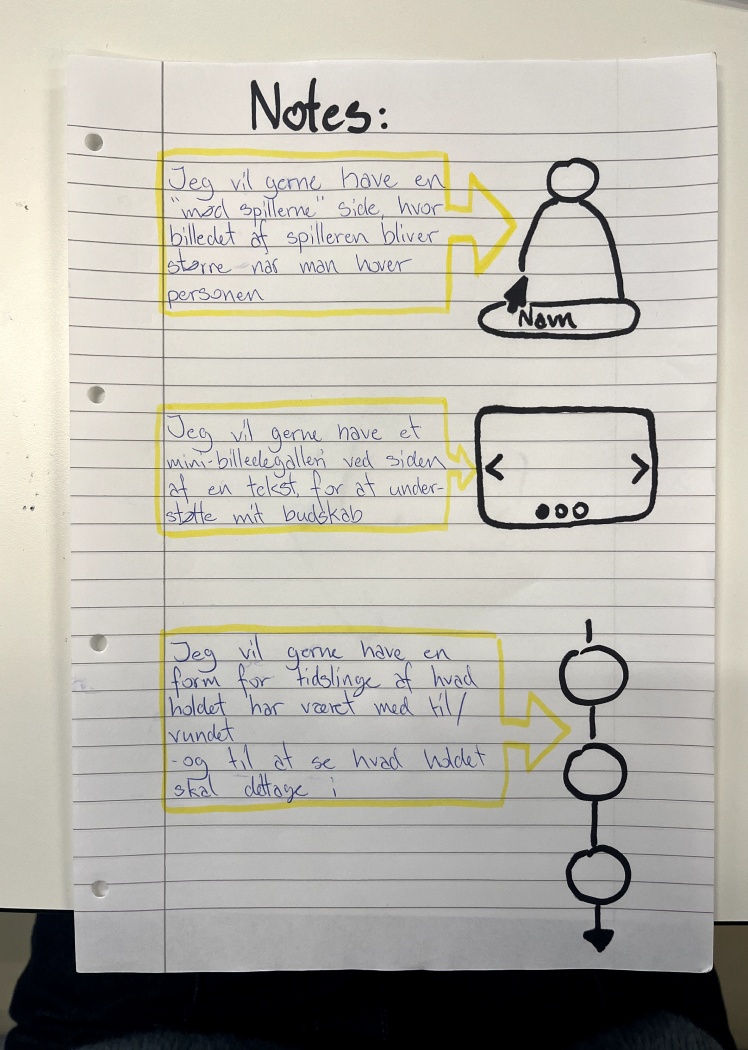 Notes:
Jeg vil gerne have en
"mød spillerne" side, hvor
billedet af spilleren bliver
større når man hover
personen
Navn
Jeg vil gerne have et
mini-billedegalleri ved siden
af en tekst, for at under-
støtte mit budskab
< >
Jeg vil gerne have en
form for tidslinje af hvad
holdet har været med til/
vundet
- og til at se hvad holdet
skal deltage i